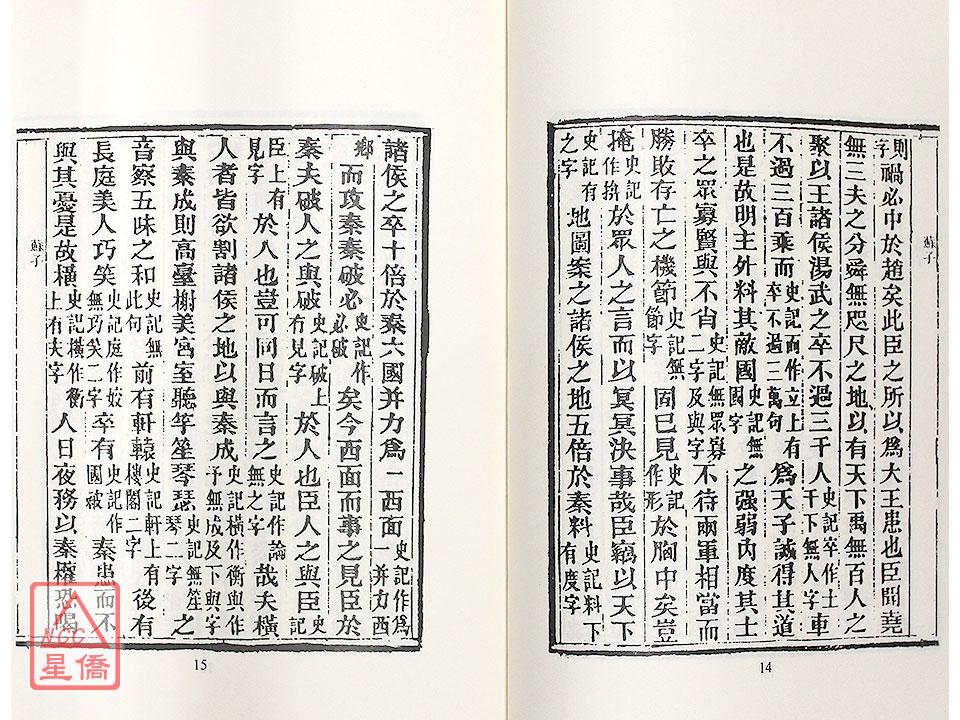 則禍必中於趙矣此臣之所以爲大王患也臣聞堯
字
無三夫之分舜無咫尺之地以有天下禹無百人之
聚以王諸侯湯武之卒不過三千人史記卒作士千下無人字車
不過三百乘而史記而作立上有卒不過三萬句爲天子誠得其道
也是故明主外料其敵國史記無國字之强弱內度其士
卒之眾寡賢與不肖史記無眾寡二字及與字不待兩軍相當而
勝敗存亡之機節史記無節字固已見史記作形於胸中矣豈
掩史記作揜於眾人之言而以冥冥決事哉臣竊以天下
史記有之字地圖案之諸侯之地五倍於秦料史記料下有度字
蘇子
14
諸侯之卒十倍於秦六國并力爲一西面史記作爲一并力西
鄉而攻秦秦破必史記作必破矣今西面而事之見臣於
秦夫破人之與破史記破上有見字於人也臣人之與臣史記
臣上有見字於人也豈可同日而言之史記作論無之字哉夫橫
人者皆欲割諸侯之地以與秦成史記橫作衡與作予無成及下與字
與秦成則高臺榭美宮室聽竽笙琴瑟史記無笙琴二字之
音察五味之和史記無此句前有軒轅史記軒上有樓闕二字後有
長庭美人巧笑史記庭作姣無巧矣二字卒有史記作國被秦患而不
與其憂是故橫史記橫作衡上有夫字人日夜務以秦權恐愒
蘇子
15
NCC
星僑